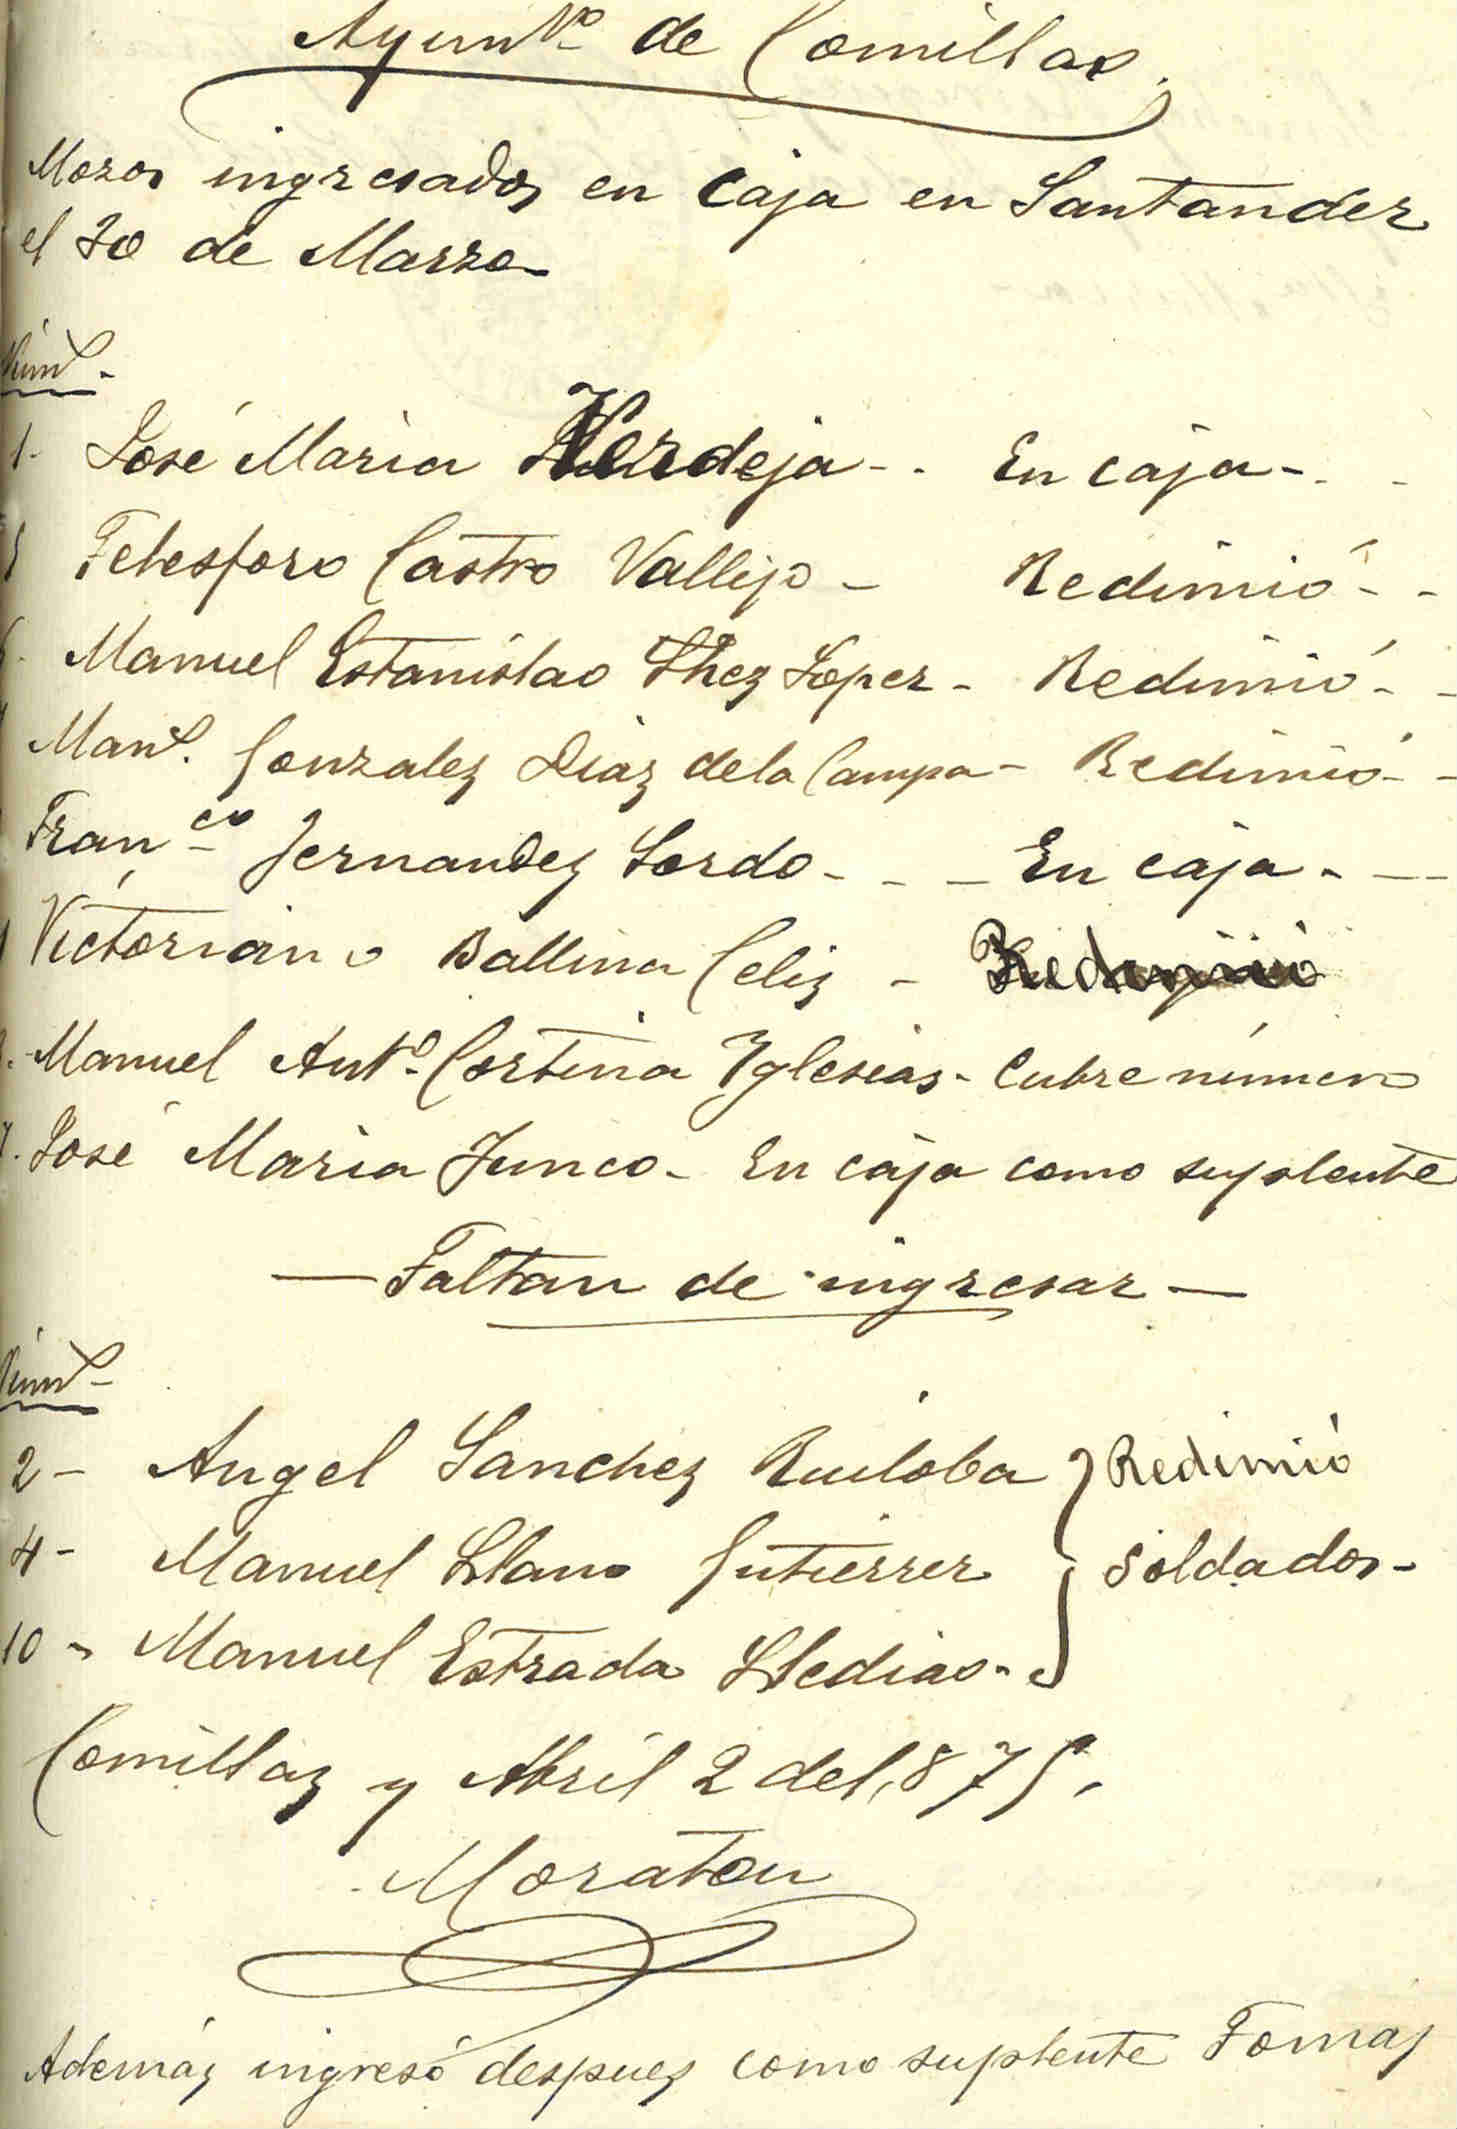 Ayunto de Comillas.
Mozos ingresados en Caja en Santander
el 30 de Marzo
Núms.
1- José Maria Herdeja - - En caja - -
Telesforo Castro Vallejo - Redimió - -
Manuel Estanislao Shez Lopez - Redimió - -
Manl. Gonzalez Diaz de la Campa - Redimió - -
Franco Fernandez Sordo - - - En caja - -
Victoriano Ballina Celiz - Redimió
Manuel Anto. Cortina Yglesias - Cubre número
José Maria Junco - En caja como suplente
— Faltan de ingresar —
Núms
2 - Angel Sanchez Ruiloba } Redimió
4 - Manuel Llano Gutierrez } Soldados -
10 - Manuel Estrada Lledias - }
Comillas y Abril 2 de 1,875.
Moraton
Además ingresó despues como suplente Tomas